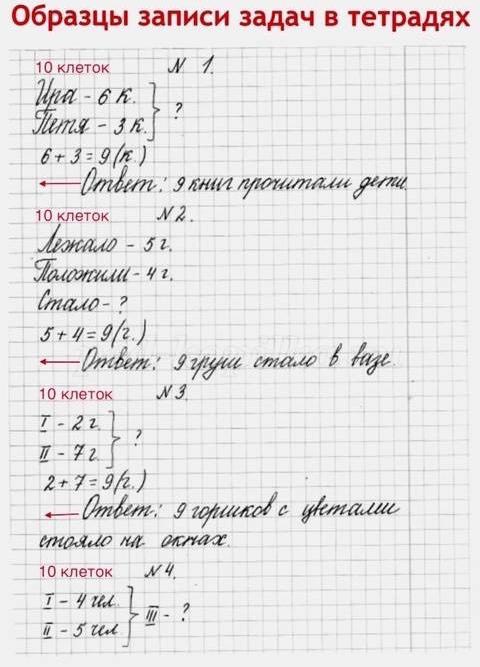 Образцы записи задач в тетрадях
10 клеток N 1.
Ира - 6 к.
Петя - 3 к. } ?
6 + 3 = 9 (к.)
Ответ: 9 книг прочитали дети.
10 клеток N 2.
Лежало - 5 г.
Положили - 4 г.
Стало - ?
5 + 4 = 9 (г.)
Ответ: 9 груш стало в вазе.
10 клеток N 3.
I - 2 г.
II - 7 г. } ?
2 + 7 = 9 (г.)
Ответ: 9 горшков с цветами
стояло на окнах.
10 клеток N 4.
I - 4 чел.
II - 5 чел } III - ?